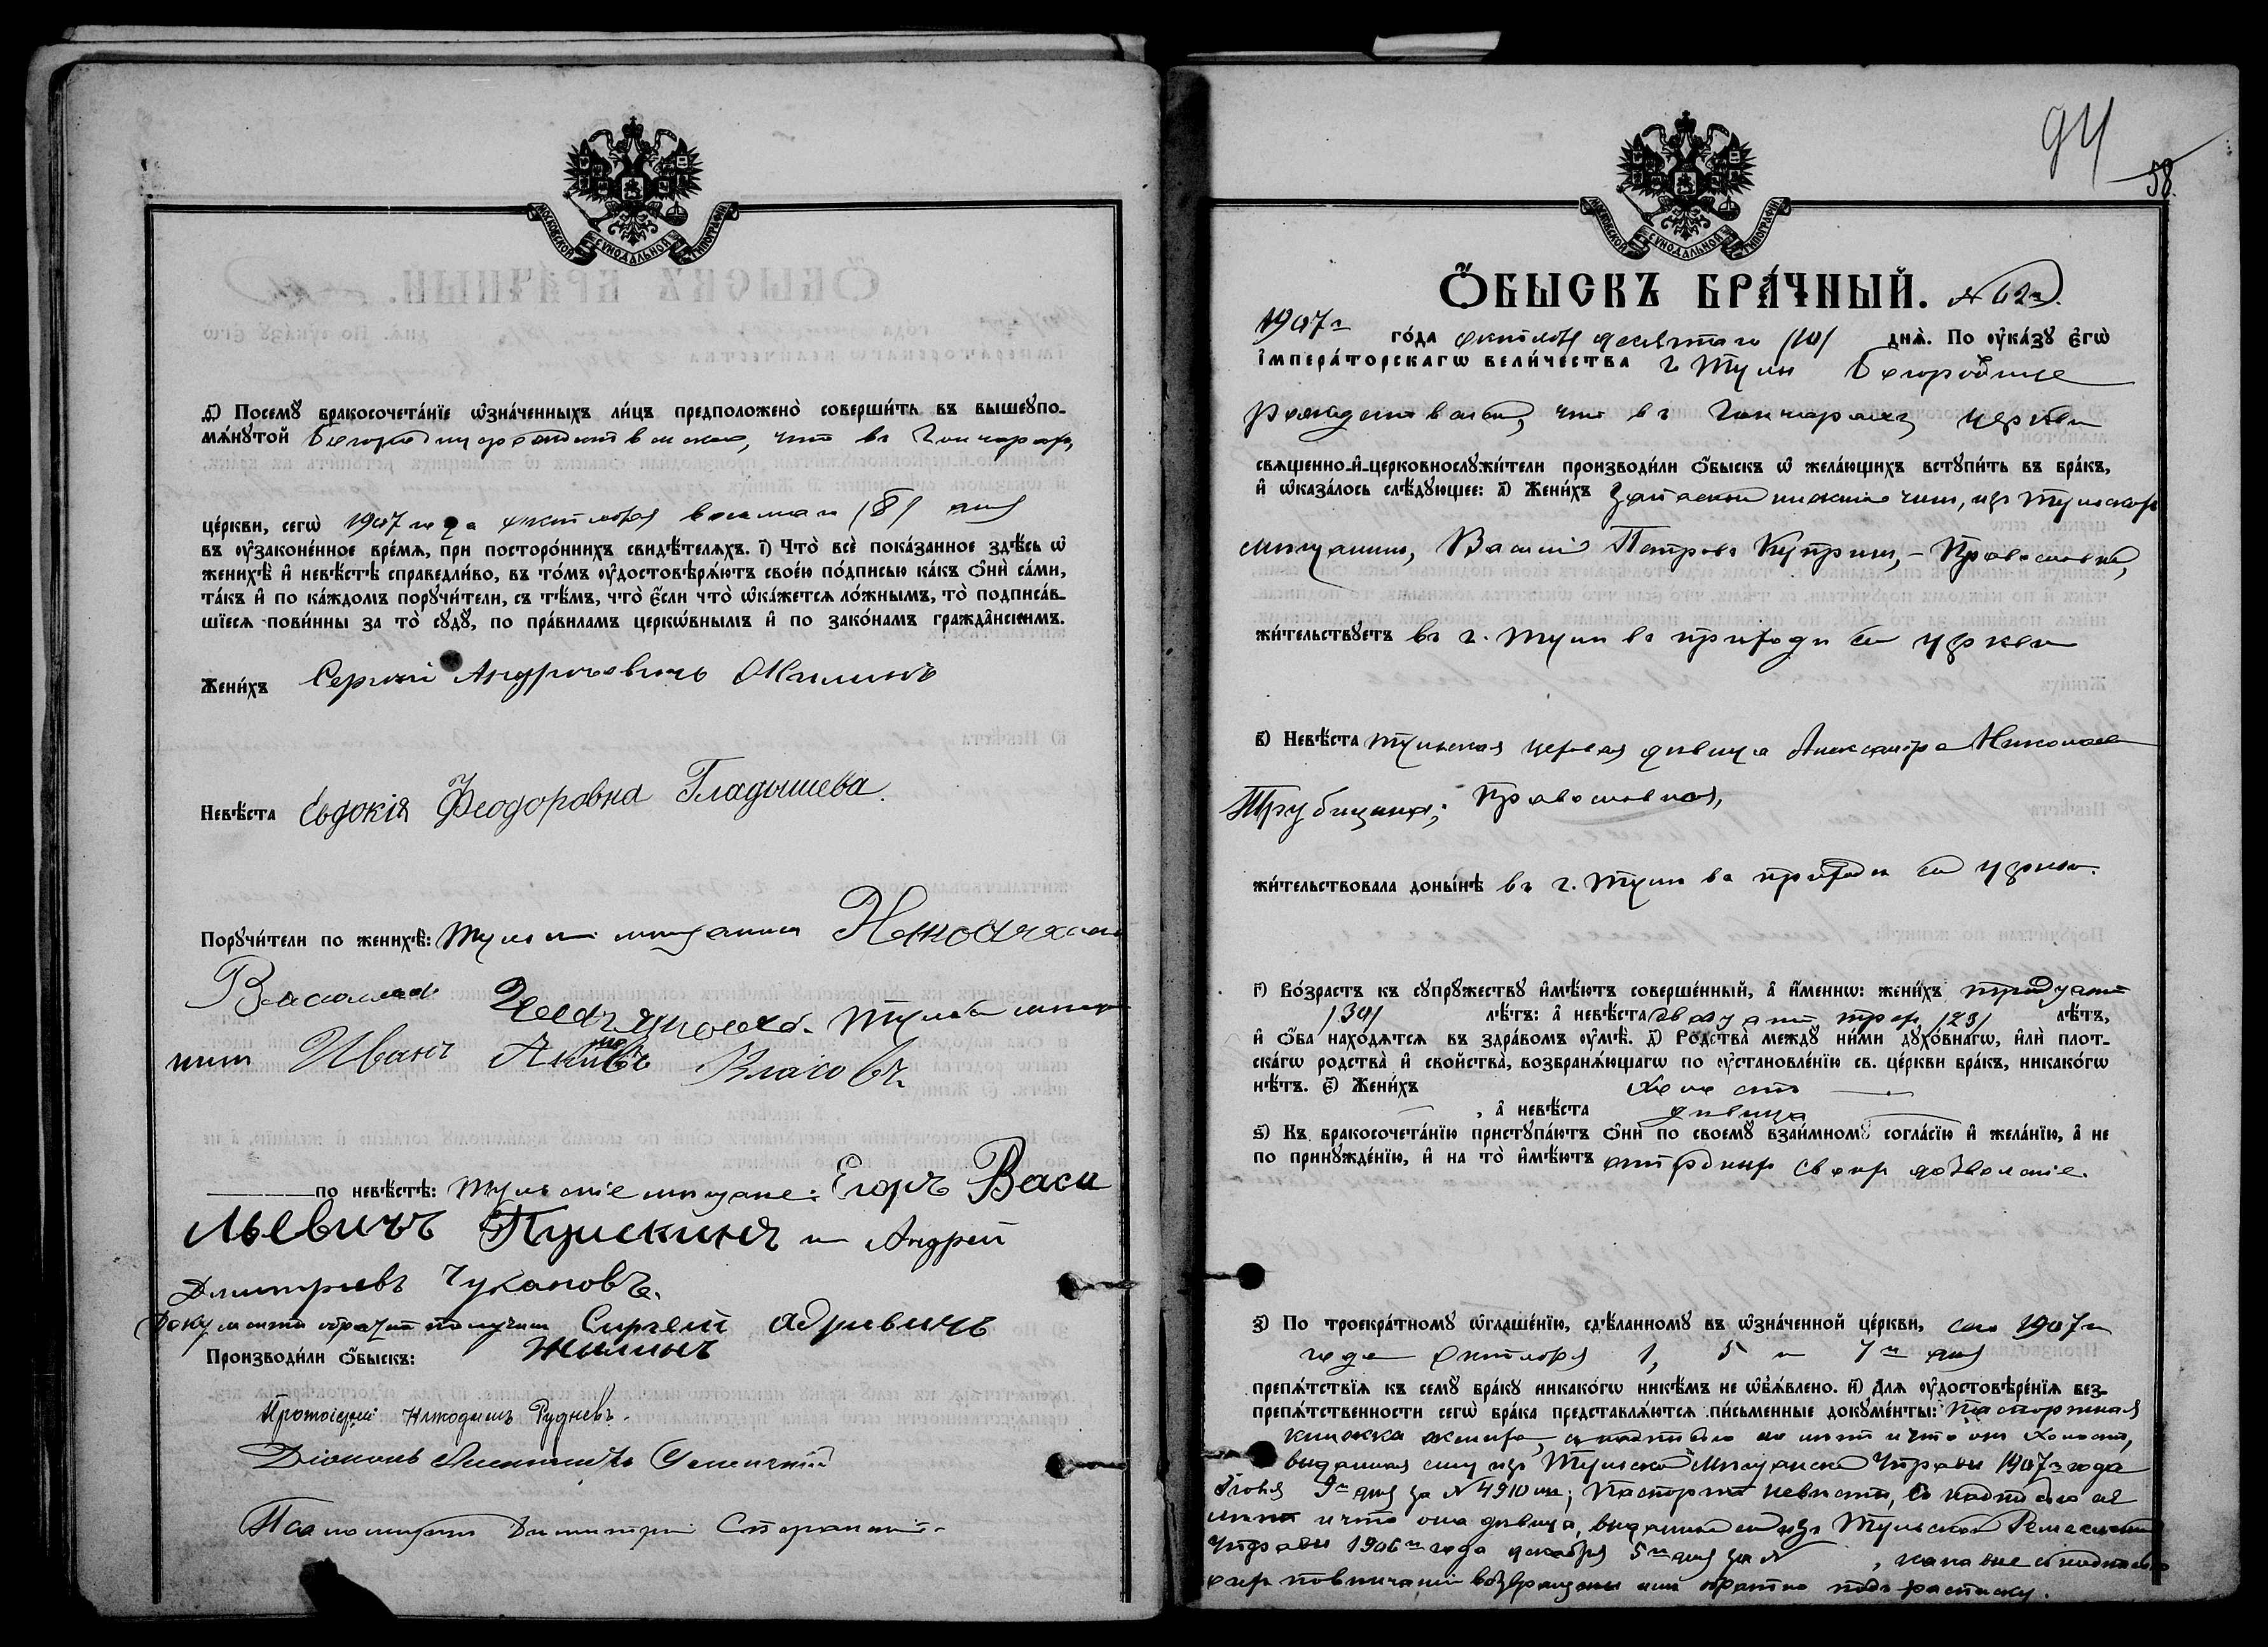 МОСКОВСКОЙ СѴНОДАЛЬНОЙ ТИПОГРАФІИ
д҃) Посемꙋ бракосочетáнїе ѡ҆знáченныхъ ли́цъ предположенò соверши́ть въ вышеꙋпо-
мѧ́нꙋтой Богородицерождественской, что въ Гончарахъ,
це́ркви, сегѡ̀ 1907 года октября восьмаго /8/ дня
въ ᲂу҆законе́нное вре́мѧ, при посторо́ннихъ свидѣ́телѧхъ. і҃) Что̀ всѐ пока́занное здѣ́сь ѡ҆
женихѣ̀ и҆ невѣ́стѣ справедли́во, въ то́мъ ᲂу҆достовѣрѧ́ютъ свое́ю по́дписью ка́къ ѻ҆нѝ са́ми,
та́къ и҆ по ка́ждомъ порꙋчи́тели, съ тѣ́мъ, что̀ є҆́сли что̀ ѡ҆ка́жетсѧ ло́жнымъ, то̀ подписа́в-
шїесѧ пови́нны за то̀ сꙋдꙋ̀, по пра́виламъ церкѡ́внымъ и҆ по зако́намъ гражда̂нскимъ.
Жени́хъ Сергѣй Андреевичъ Жилинъ
Невѣ́ста Евдокія Феодоровна Гладышева.
Порꙋчи́тели по женихѣ̀: Тульскій мѣщанинъ
Иванъ Власовъ
по невѣ́стѣ: Тульскіе мѣщане: Егоръ Васи
льевичъ Пушкинъ и Андрей
Дмитріевъ Чукановъ.
Документы обратно получилъ Сиргей Адривичъ
Жилинъ
Производи́ли ѻ҆́быскъ:
Протоіерей Никодимъ Рудневъ.
Діаконъ Успенскій
Псаломщикъ Димитрій
94
58.
МОСКОВСКОЙ СѴНОДАЛЬНОЙ ТИПОГРАФІИ
Ѻ҆́БЫСКЪ БРА́ЧНЫЙ. № 62й.
1907г
го́да октября десятаго /10/ днѧ̀. По ᲂу҆ка́зꙋ є҆гѡ̀
і҆мпера́торскагѡ вели́чества г. Тулы Богородице
рождественской, что въ Гончарахъ, церкви
свѧщенно-и҆-церковнослꙋжи́тели производи́ли ѻ҆́быскъ ѡ҆ жела́ющихъ встꙋпи́ть въ бра́къ,
и҆ ѡ҆каза́лось слѣ́дꙋющее: а҃) Жени́хъ запасной нижній чинъ, изъ Тульскихъ
мѣщанинъ, Василій Петровъ Купринъ, – Православный,
жи́тельствꙋетъ въ г. Тулѣ въ приходѣ сей церкви
в҃) Невѣ́ста Тульская цеховая дѣвица Александра Николаева
Трубицына; православная,
жи́тельствовала доны́нѣ въ г. Тулѣ въ приходѣ сей церкви.
г҃) Во́зрастъ къ сꙋпрꙋ́жествꙋ и҆мѣ́ютъ соверше́нный, а҆ и҆́меннѡ: жени́хъ тридцати
/30/ лѣ́тъ: а҆ невѣ́ста двадцати трехъ /23/ лѣ́тъ,
и҆ ѻ҆́ба нахо́дѧтсѧ въ здра́вомъ ᲂу҆мѣ̀. д҃) Родства̀ междꙋ̀ ни́ми дꙋхо́внагѡ, и҆лѝ плот-
ска́гѡ родства̀ и҆ свойства̀, возбранѧ́ющагѡ по ᲂу҆становле́нїю св. це́ркви бра́къ, никако́гѡ
нѣ́тъ. є҃) Жени́хъ холостъ
, а҆ невѣ́ста дѣвица
ѕ҃) Къ бракосочета́нїю пристꙋпа́ютъ ѻ҆нѝ по своемꙋ̀ взаи́мномꙋ согла́сїю и҆ жела́нїю, а҆ не
по принꙋжде́нїю, и҆ на то̀ и҆мѣ́ютъ отъ родныхъ своихъ дозволеніе.
з҃) По троекра́тномꙋ ѡ҆глаше́нїю, сдѣ́ланномꙋ въ ѡ҆зна́ченной це́ркви, сего 1907г
года октября 1, 5 и 7го дня
препѧ́тствїѧ къ семꙋ̀ бра́кꙋ никако́гѡ никѣ́мъ не ѡ҆б̾ѧ́влено. и҃) Длѧ ᲂу҆достовѣре́нїѧ без-
препѧ́тственности сегѡ̀ бра́ка представлѧ́ютсѧ пи́сьменные докꙋме́нты: Паспортная
книжка жениха, съ надписью о лѣтъ и что онъ холостъ,
выданная ему изъ Тульской Мѣщанской Управы 1907го года
Іюня 9го дня за № 4910мъ; Паспортъ невѣсты, съ надписью ея
лѣтъ и что она дѣвица, выданный ей изъ Тульской Ремесленной
Управы 1906го года декабря 5го дня за №
повѣнчаніи возвращены имъ обратно подъ расписку.